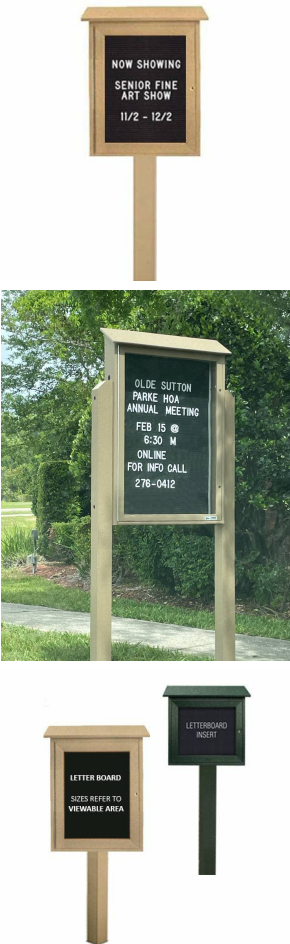 NOW SHOWING
SENIOR FINE
ART SHOW
11/2 - 12/2
OLDE SUTTON
PARKE HOA
ANNUAL MEETING
FEB 15 @
6:30 M
ONLINE
FOR INFO CALL
276-0412
LETTERBOARD
INSERT
LETTER BOARD
SIZES REFER TO
VIEWABLE AREA